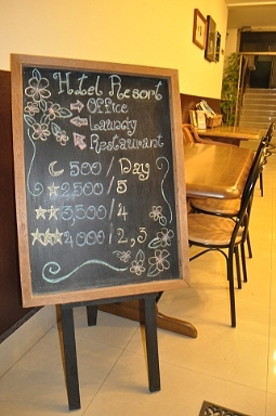 Hotel Resort
Office
Laundy
Restaurant
500/Day
2500/5
3,500/4
4000/2,3